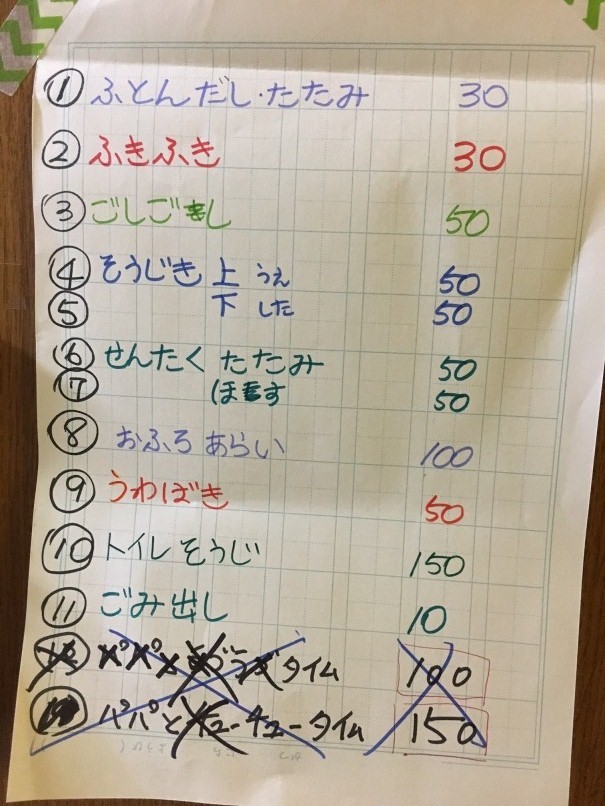 ① ふとんだし・たたみ 30
② ふきふき 30
③ ごしごし 50
④ そうじき 上 うえ 50
⑤ 下 した 50
⑥ せんたく たたみ 50
⑦ ほす 50
⑧ おふろ あらい 100
⑨ うわばき 50
⑩ トイレ そうじ 150
⑪ ごみ出し 10
パパと タイム 100
パパとチューチュータイム 150